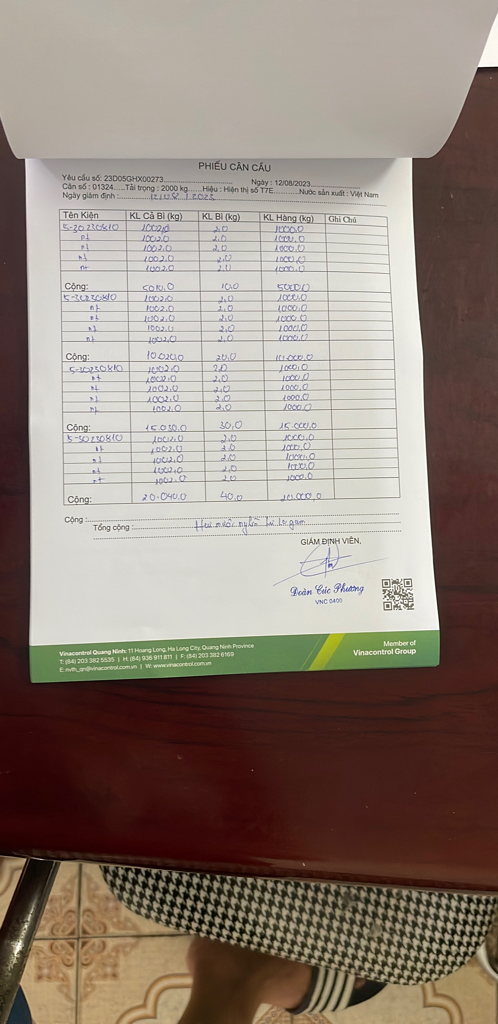 PHIẾU CÂN CẨU
Yêu cầu số: 23D05GHX00273 Ngày : 12/08/2023
Cân số : 01324.....Tải trọng : 2000 kg.......Hiệu : Hiện thị số T7E............Nước sản xuất : Việt Nam
Ngày giám định : 12/08/2023
Tên Kiện KL Cả Bì (kg) KL Bì (kg) KL Hàng (kg) Ghi Chú
5-30230810 1002,0 2,0 1000,0
nt 1002,0 2,0 1000,0
nt 1002,0 2,0 1000,0
nt 1002,0 2,0 1000,0
nt 1002,0 2,0 1000,0
Cộng: 5010,0 10,0 5000,0
5-30230810 1002,0 2,0 1000,0
nt 1002,0 2,0 1000,0
nt 1002,0 2,0 1000,0
nt 1002,0 2,0 1000,0
nt 1002,0 2,0 1000,0
Cộng: 10.020,0 20,0 10.000,0
5-30230810 1002,0 2,0 1000,0
nt 1002,0 2,0 1000,0
nt 1002,0 2,0 1000,0
nt 1002,0 2,0 1000,0
nt 1002,0 2,0 1000,0
Cộng: 15.030,0 30,0 15.000,0
5-30230810 1002,0 2,0 1000,0
nt 1002,0 2,0 1000,0
nt 1002,0 2,0 1000,0
nt 1002,0 2,0 1000,0
nt 1002,0 2,0 1000,0
Cộng: 20.040,0 40,0 20.000,0
Cộng :
Tổng cộng : Hai mươi nghìn ki lô gam
GIÁM ĐỊNH VIÊN,
Đoàn Cúc Phương
VNC 0400
Vinacontrol Quang Ninh: 11 Hoang Long, Ha Long City, Quang Ninh Province
T: (84) 203 382 5535 | H: (84) 936 911 811 | F: (84) 203 382 6169
E: nvth_qn@vinacontrol.com.vn | W: www.vinacontrol.com.vn
Member of
Vinacontrol Group